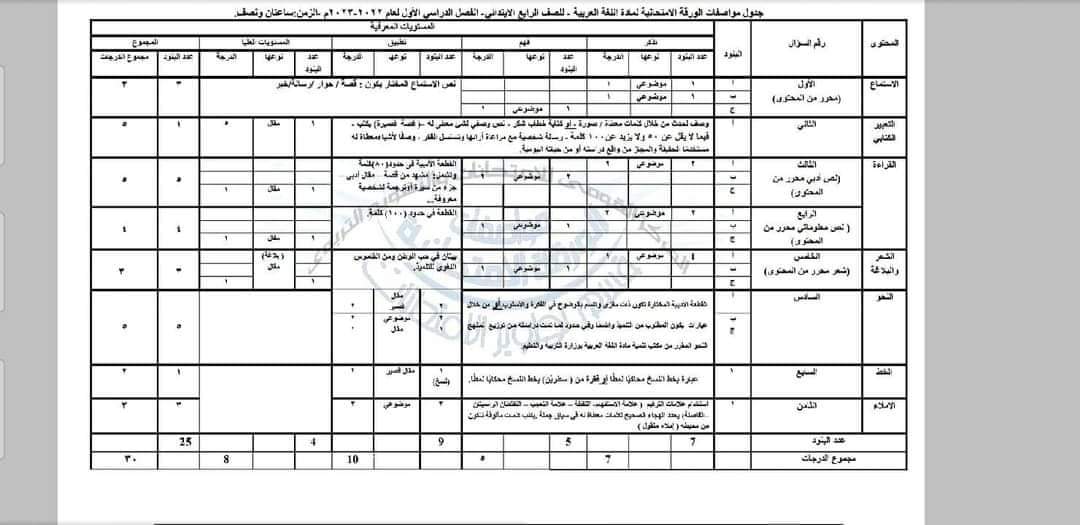 جدول مواصفات الورقة الامتحانية لمادة اللغة العربية - للصف الرابع الابتدائي- الفصل الدراسي الأول لعام ٢٠٢٢-٢٠٢٣م -الزمن: ساعتان ونصف.
المحتوى رقم السؤال البنود المستويات المعرفية المجموع
تذكر فهم تطبيق المستويات العليا
عدد البنود نوعها الدرجة عدد البنود نوعها الدرجة عدد البنود نوعها الدرجة عدد البنود نوعها الدرجة عدد البنود مجموع الدرجات
الاستماع الأول (محرر من المحتوى)
أ ١ موضوعي ١ نص الاستماع المختار يكون : قصة / حوار / رسالة/خبر ٣ ٣
ب ١ موضوعي ١
ج ١ موضوعي ١
التعبير الكتابي الثاني أ وصف لحدث من خلال كلمات معطاة / صورة - أو كتابة خطاب شكر - نص وصفي لشئ معطى له – (قصة قصيرة) يكتب - ١ مقال ٥ ١ ٥
فيما لا يقل عن ٥٠ ولا يزيد عن ١٠٠ كلمة - رسالة شخصية مع مراعاة أركانها وتسلسل الفكر ، وصفًا لأشياء معطاة له
مستخدمًا الحقيقة والمجاز من واقع دراسته أو من حياته اليومية.
القراءة الثالث (نص أدبي محرر من المحتوى)
أ ٢ موضوعي ٢ القطعة الأدبية في حدود(٨٠)كلمة ٥ ٥
ب ٢ موضوعي ٢ وتشمل: مشهد من قصة - مقال أدبي
ج جزء من سيرة أو ترجمة لشخصية معروفة.. ١ مقال ١
الرابع ( نص معلوماتي محرر من المحتوى)
أ ٢ موضوعي ٢ القطعة في حدود (١٠٠) كلمة. ٤ ٤
ب ١ موضوعي ١
ج ١ مقال ١
الشعر والبلاغة الخامس (شعر محرر من المحتوى)
أ ١ موضوعي ١ بيتان في حب الوطن ومن القاموس اللغوي للتلميذ. (بلاغة) ٣ ٣
ب ١ موضوعي ١ مقال
ج ١ ١
النحو السادس
أ القطعة الأدبية المختارة تكون ذات مغزى وتتسم بالوضوح في الفكرة والأسلوب أو من خلال ٢ مقال قصير ٢ ٥ ٥
ب عبارات يكون المطلوب من التلميذ واضحًا وفي حدود لما تمت دراسته من توزيع لمنهج ٢ موضوعي ٢
ج النحو المقرر من مكتب تنمية مادة اللغة العربية بوزارة التربية والتعليم. ١ مقال ١
الخط السابع ١ عبارة بخط النسخ محاكيًا نمطًا أو فقرة من ( سطرين) بخط النسخ محاكيًا نمطًا. ١ (نسخ) مقال قصير ٢ ١ ٢
الاملاء الثامن ١ استخدام علامات الترقيم ( علامة الاستفهام- النقطة – علامة التعجب – النقطتان الرأسيتان ٣ موضوعي ٣ ٣ ٣
-الفاصلة) يحدد الهجاء الصحيح لكلمات معطاة له في سياق جملة يكتب كلمات مألوفة تكون
من محيطه ( إملاء منقول )
عدد البنود 7 5 9 4 25
مجموع الدرجات 7 ٥ 10 8 ٣٠